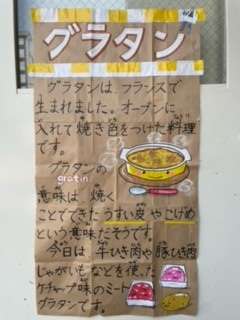 グラタン
グラタンは、フランスで
生まれました。オーブンに
入れて焼き色をつけた料理
です。
グラタンの
gratin
意味は、焼く
ことでできたうすい皮やこげめ
という意味だそうです。
今日は、牛ひき肉や豚ひき肉
じゃがいもなどを使った
ケチャップ味のミート
グラタンです。